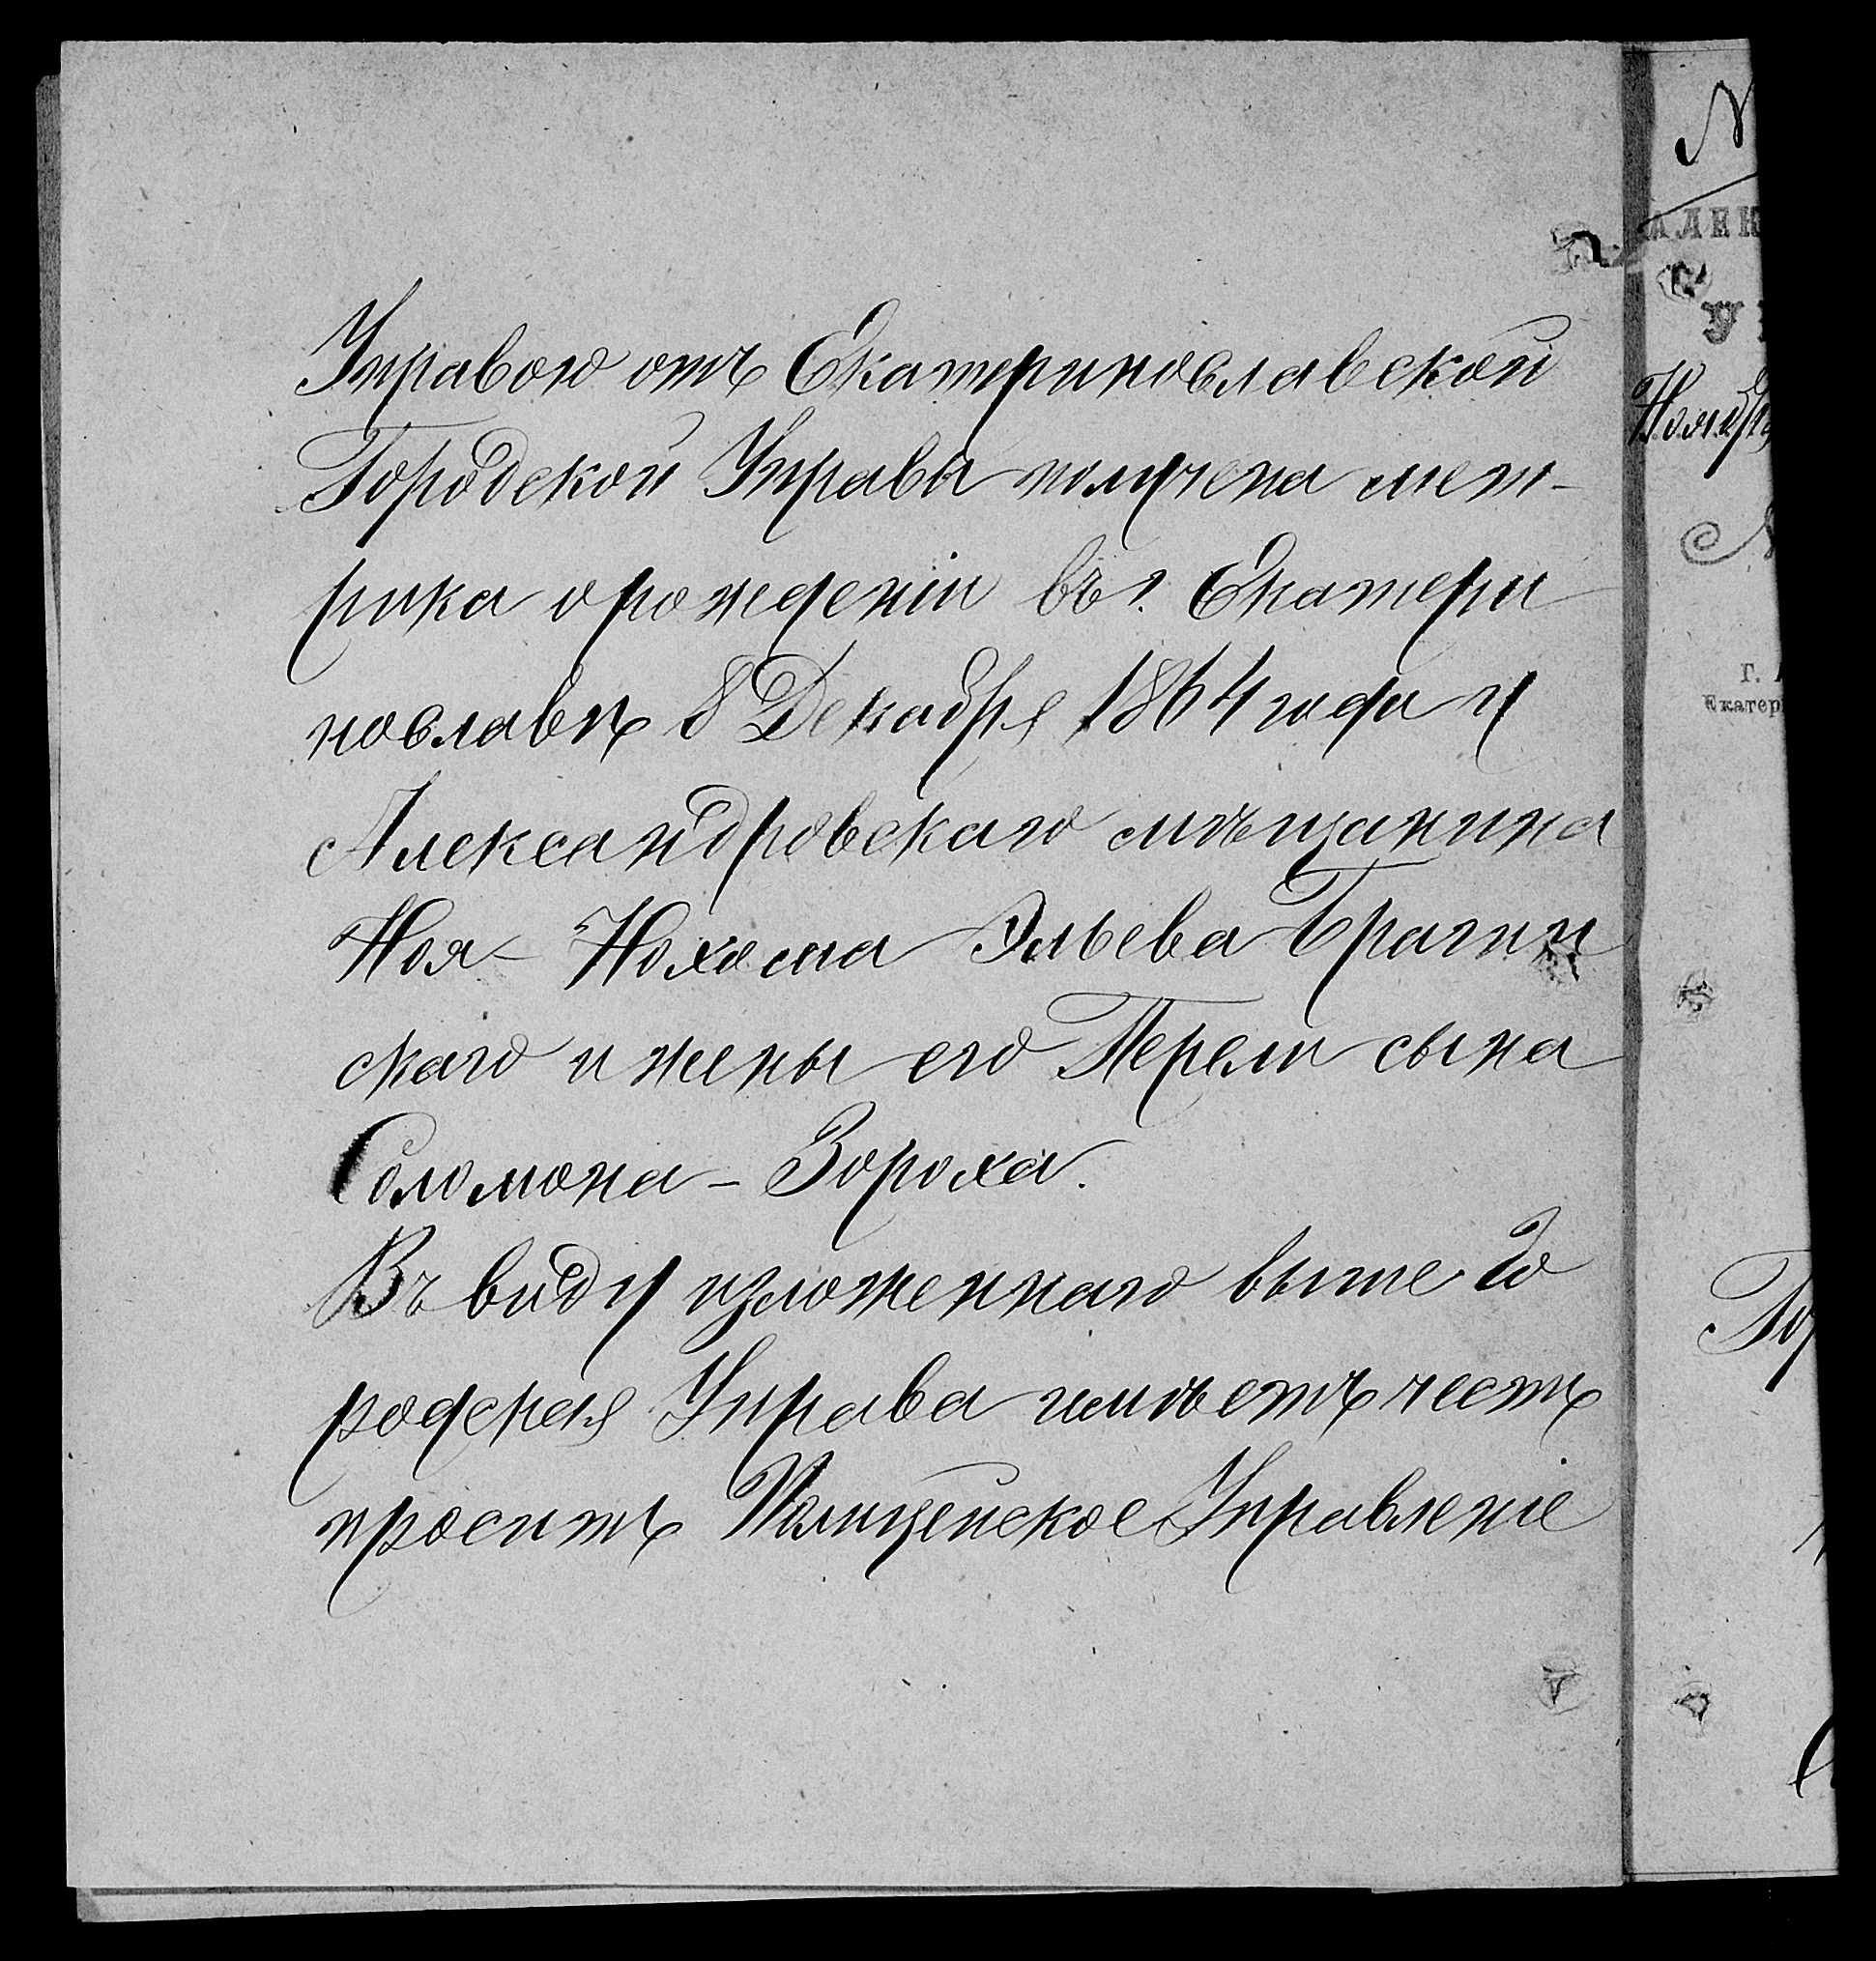 Управою отъ Екатеринославской
Городской Управы получена мет-
рика о рожденіи въ г. Екатери
нославѣ 8 Декабря 1864 года у
Александровскаго мѣщанина
Ноя-Нохема Эльева Брагин
скаго и жены его Перли сына
Соломона-Зороха.
Въ виду изложеннаго выше Го
родская Управа имѣетъ честь
просить Полицейское Управленіе
N
АЛЕК
У
Ноября
Г.
Екатер
Гор